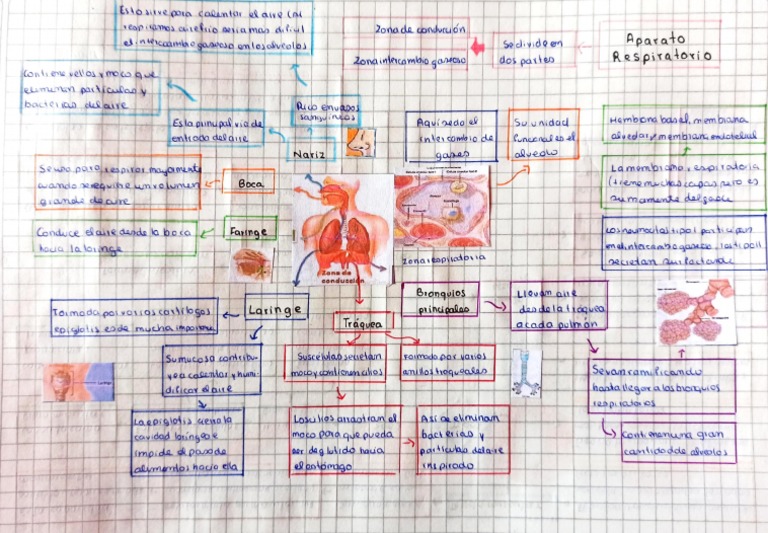 Esto sirve para calentar el aire (al
respiramos aire frío sería mas difícil
el intercambio gaseoso en los alvéolos
Zona de conducción
Zona intercambio gaseoso
Se divide en
dos partes
Aparato
Respiratorio
Contiene vellos y moco que
eliminan partículas y
bacterias del aire
Es la principal vía de
entrada del aire
Rico en vasos
sanguíneos
Nariz
Aquí se da el
intercambio de
gases
Su unidad
funcional es el
alveolo
Membrana basal, membrana
alveolar y membrana endotelial
La membrana respiratoria
tiene muchas capas pero es
sumamente delgada
Los neumocitos tipo I participan
en el intercambio gaseoso, los tipo II
secretan surfactante
Se usa para respirar mayormente
cuando se requiere un volumen
grande de aire
Boca
Conduce el aire desde la boca
hacia la laringe
Faringe
Zona de
conducción
Zona respiratoria
Formada por varios cartílagos
epiglotis es de mucha
Laringe
Su mucosa contribu-
ye a calentar y humi-
dificar el aire
La epiglotis cierra la
cavidad laríngea e
impide el paso de
alimentos hacia ella
Tráquea
Sus células secretan
moco y contienen cilios
Formado por varios
anillos traqueales
Los cilios arrastran el
moco para que pueda
ser deglutido hacia
el estómago
Así se eliminan
bacterias y
partículas del aire
inspirado
Bronquios
principales
Llevan aire
desde la tráquea
a cada pulmón
Se van ramificando
hasta llegar a los bronquios
respiratorios
Contienen una gran
cantidad de alveolos